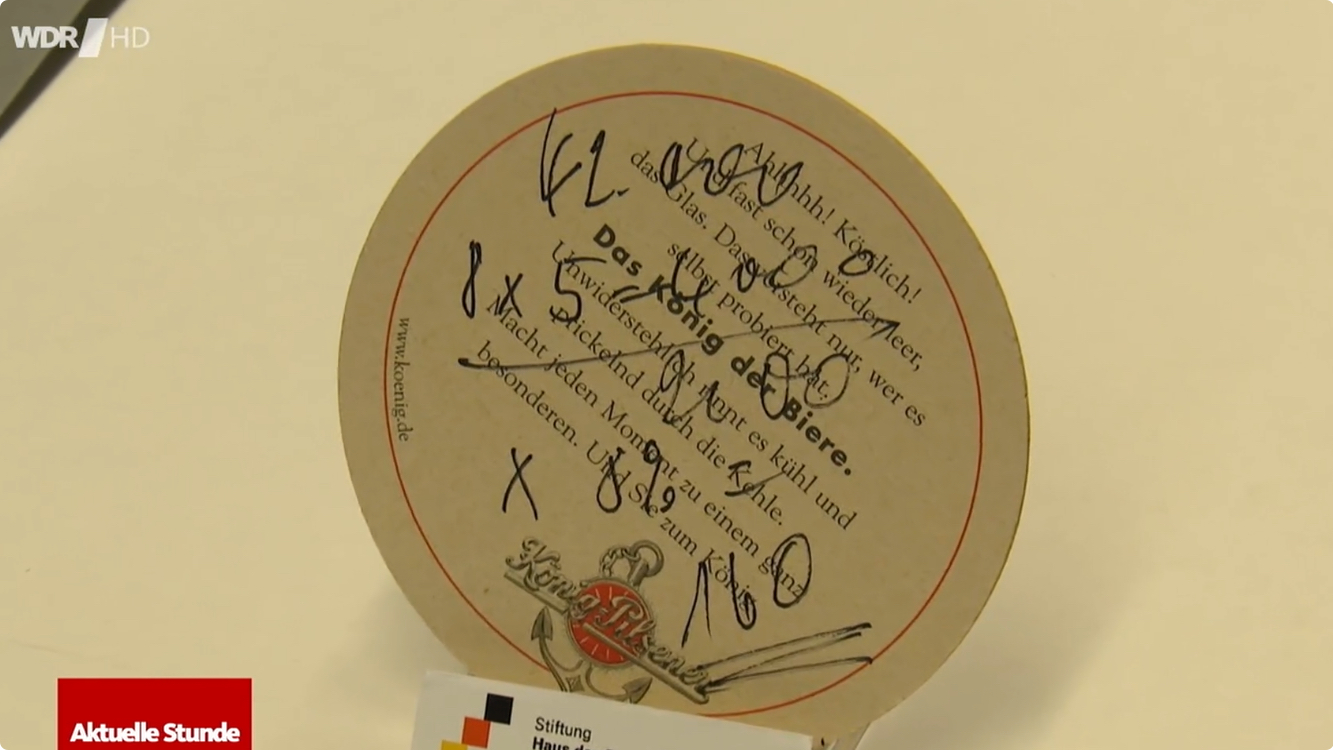 WDR HD
Ahhhhh! Köstlich!
Und fast schon wieder leer,
das Glas. Das versteht nur, wer es
selbst probiert hat.
Das König der Biere.
Unwiderstehlich rinnt es kühl und
prickelnd durch die Kehle.
Macht jeden Moment zu einem ganz
besonderen. Und Sie zum König.
www.koenig.de
8 x 5
x 89,
160
König-Pilsener
Stiftung
Haus der
Aktuelle Stunde